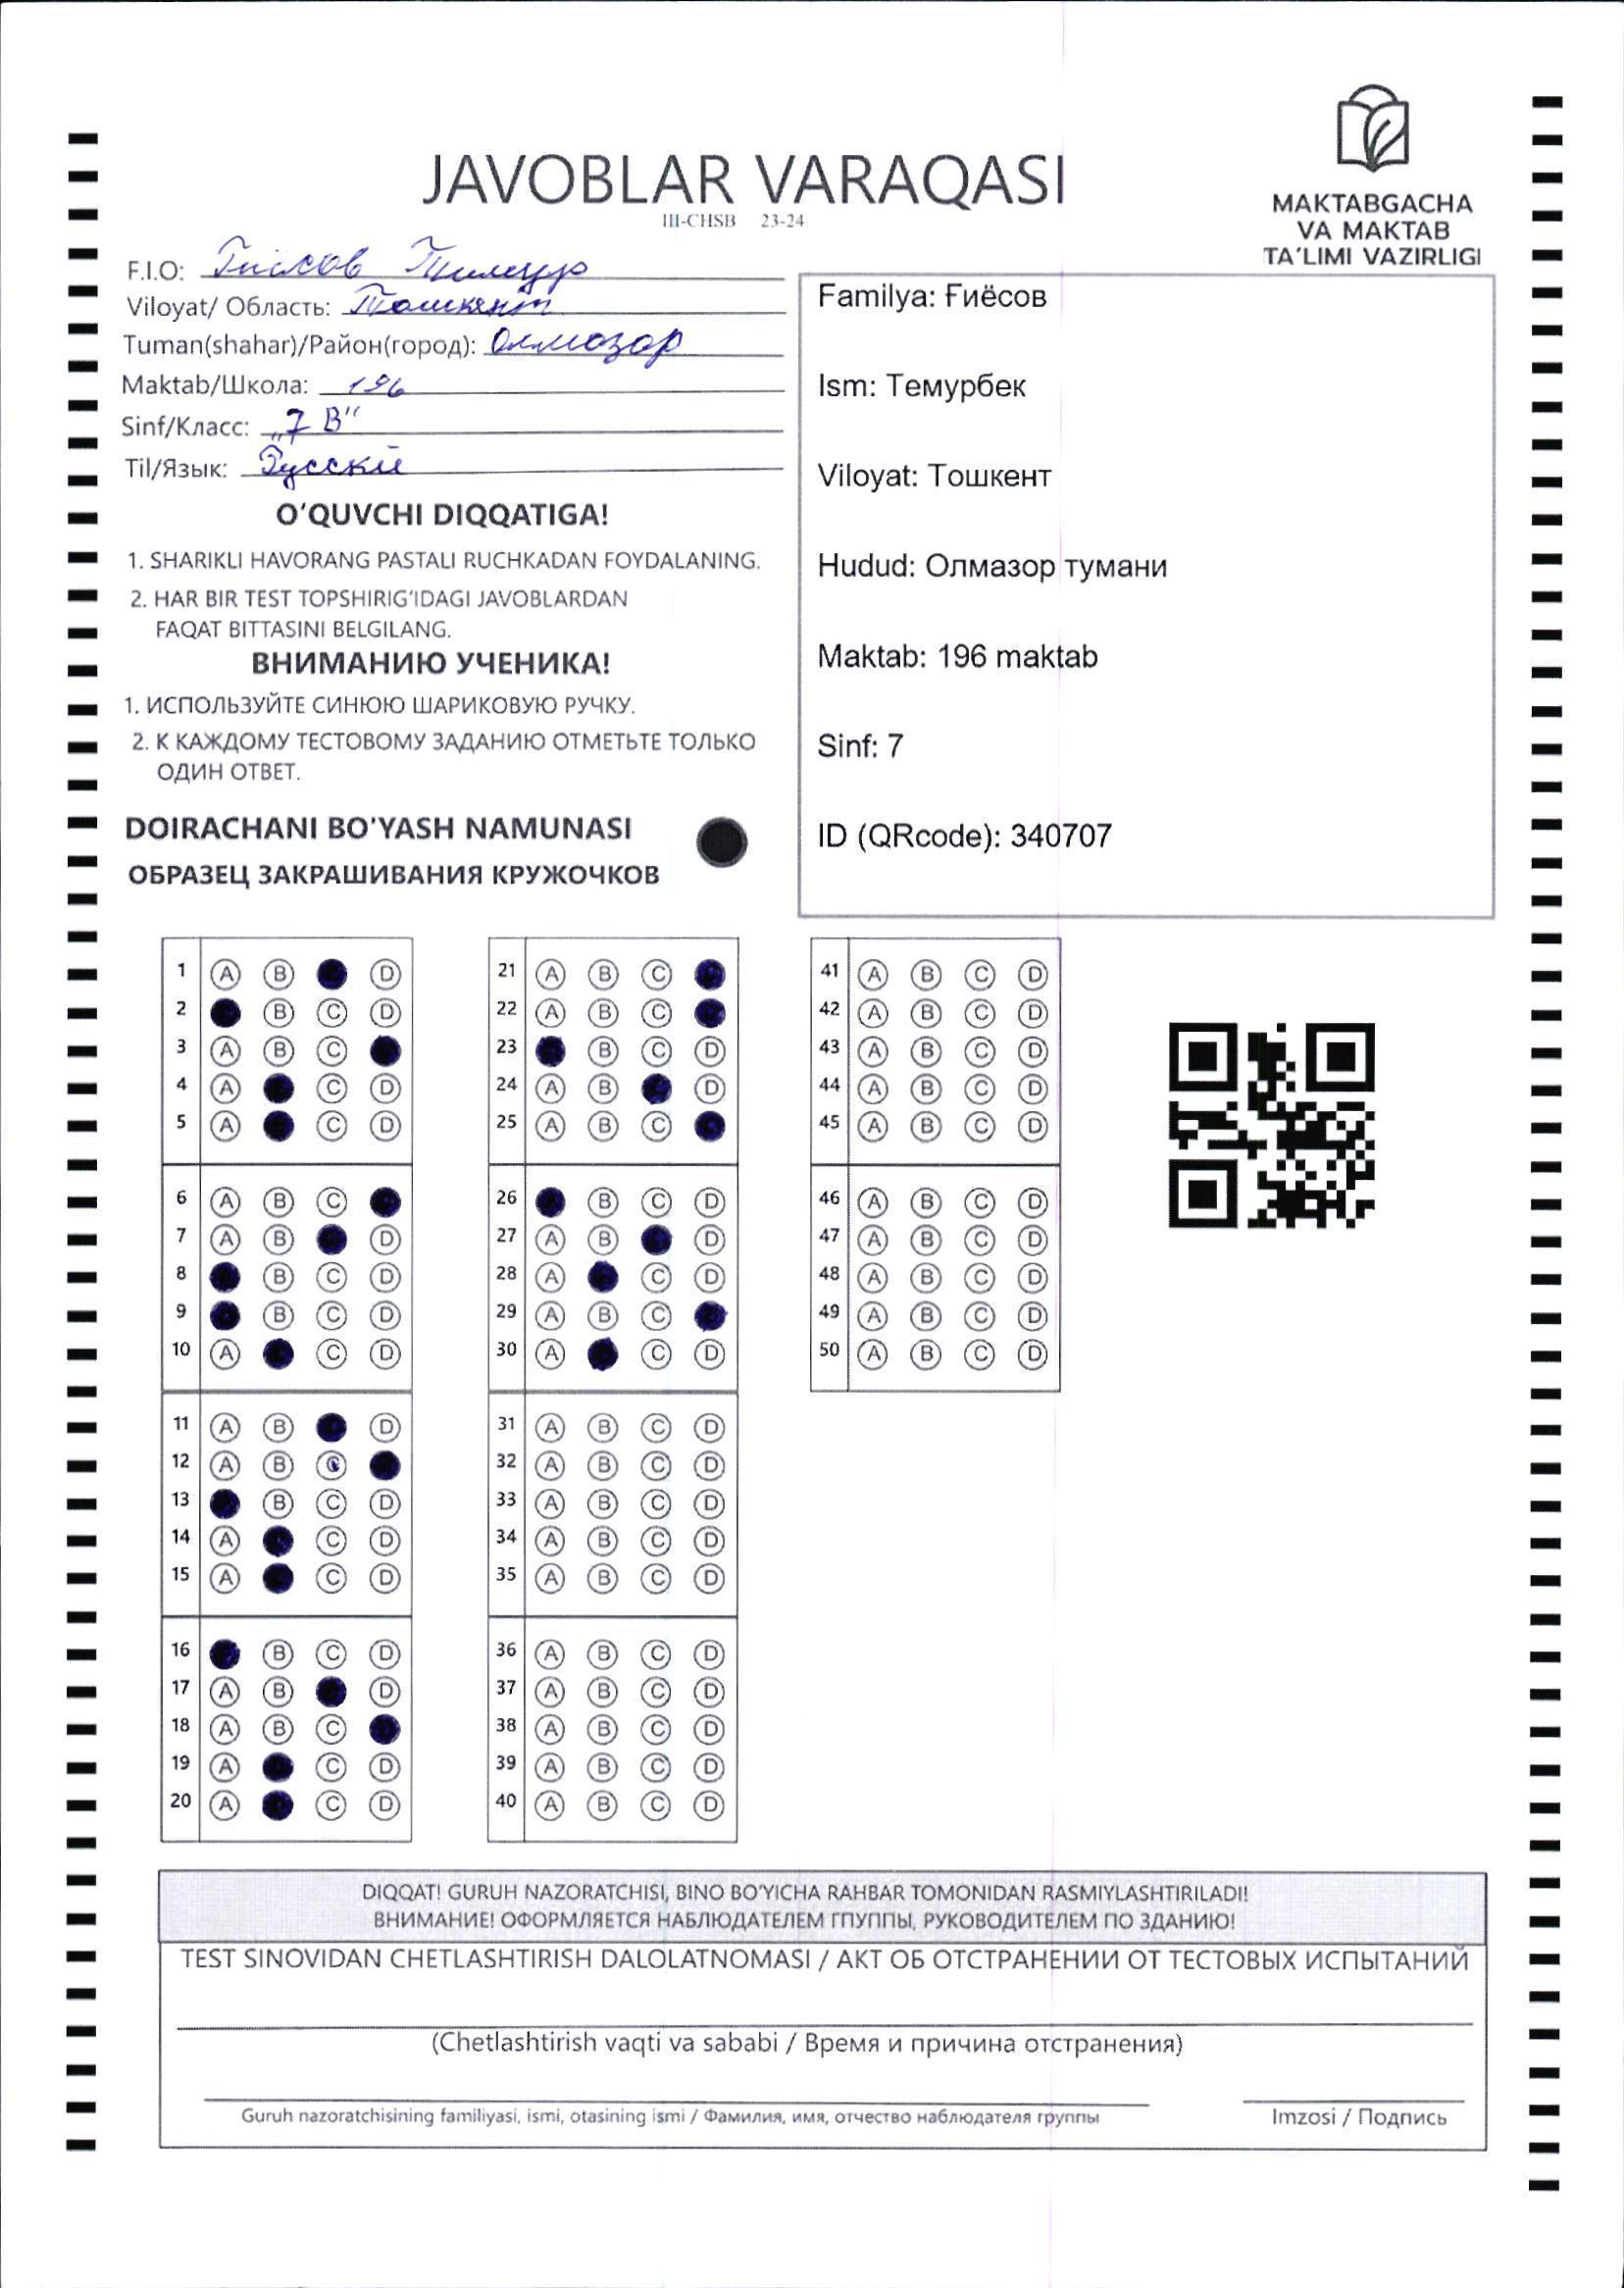 JAVOBLAR VARAQASI
III-CHSB 23-24
MAKTABGACHA
VA MAKTAB
TA'LIMI VAZIRLIGI
F.I.O: Гиясов Тимур
Viloyat/ Область: Тошкент
Tuman(shahar)/Район(город): Олмозор
Maktab/Школа: 196
Sinf/Класс: „7 В“
Til/Язык: Русскй
O'QUVCHI DIQQATIGA!
1. SHARIKLI HAVORANG PASTALI RUCHKADAN FOYDALANING.
2. HAR BIR TEST TOPSHIRIG'IDAGI JAVOBLARDAN
FAQAT BITTASINI BELGILANG.
ВНИМАНИЮ УЧЕНИКА!
1. ИСПОЛЬЗУЙТЕ СИНЮЮ ШАРИКОВУЮ РУЧКУ.
2. К КАЖДОМУ ТЕСТОВОМУ ЗАДАНИЮ ОТМЕТЬТЕ ТОЛЬКО
ОДИН ОТВЕТ.
DOIRACHANI BO'YASH NAMUNASI
ОБРАЗЕЦ ЗАКРАШИВАНИЯ КРУЖОЧКОВ
Familya: Ғиёсов
Ism: Темурбек
Viloyat: Тошкент
Hudud: Олмазор тумани
Maktab: 196 maktab
Sinf: 7
ID (QRcode): 340707
1 A B D
2 B C D
3 A B C
4 A C D
5 A C D
6 A B C
7 A B D
8 B C D
9 B C D
10 A C D
11 A B D
12 A B C
13 B C D
14 A C D
15 A C D
16 B C D
17 A B D
18 A B C
19 A C D
20 A C D
21 A B C
22 A B C
23 B C D
24 A B D
25 A B C
26 B C D
27 A B D
28 A C D
29 A B C
30 A C D
31 A B C D
32 A B C D
33 A B C D
34 A B C D
35 A B C D
36 A B C D
37 A B C D
38 A B C D
39 A B C D
40 A B C D
41 A B C D
42 A B C D
43 A B C D
44 A B C D
45 A B C D
46 A B C D
47 A B C D
48 A B C D
49 A B C D
50 A B C D
DIQQAT! GURUH NAZORATCHISI, BINO BO'YICHA RAHBAR TOMONIDAN RASMIYLASHTIRILADI!
ВНИМАНИЕ! ОФОРМЛЯЕТСЯ НАБЛЮДАТЕЛЕМ ГПУППЫ, РУКОВОДИТЕЛЕМ ПО ЗДАНИЮ!
TEST SINOVIDAN CHETLASHTIRISH DALOLATNOMASI / АКТ ОБ ОТСТРАНЕНИИ ОТ ТЕСТОВЫХ ИСПЫТАНИЙ
(Chetlashtirish vaqti va sababi / Время и причина отстранения)
Guruh nazoratchisining familiyasi, ismi, otasining ismi / Фамилия, имя, отчество наблюдателя группы
Imzosi / Подпись